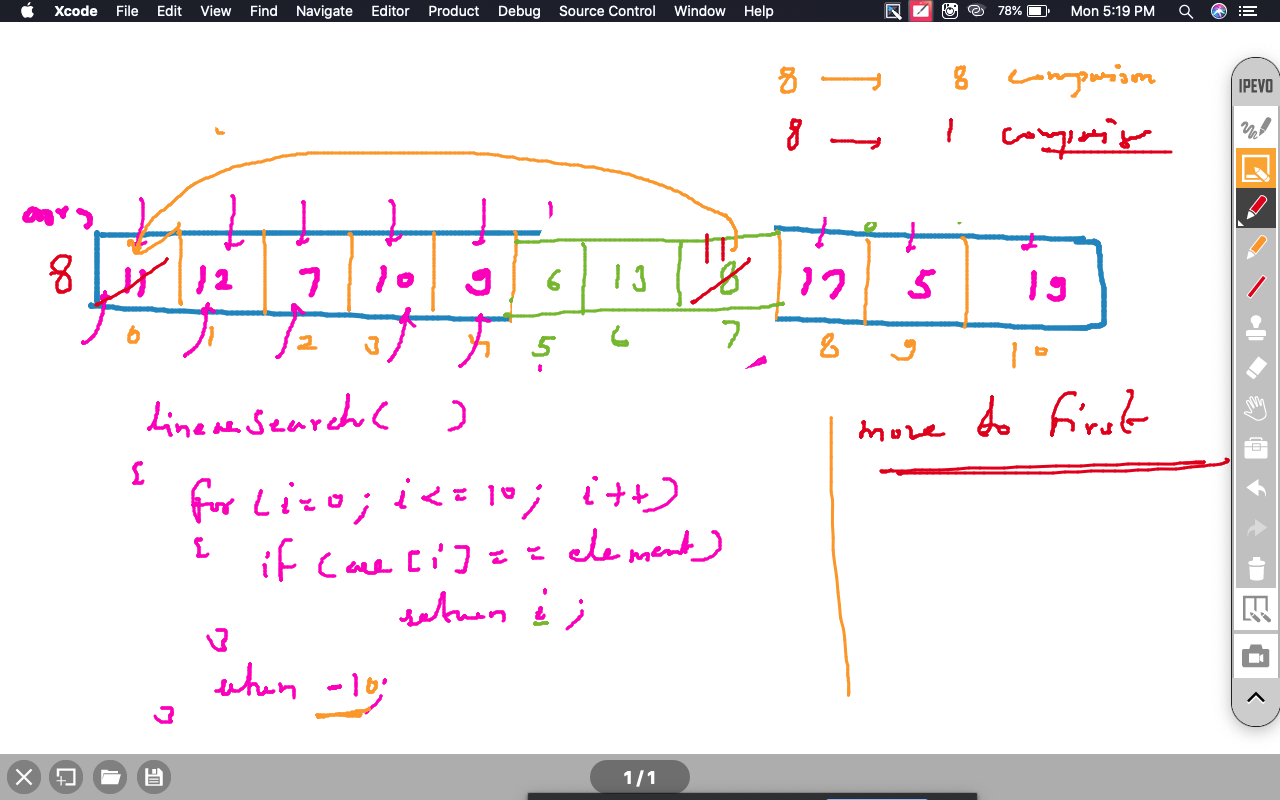 Xcode File Edit View Find Navigate Editor Product Debug Source Control Window Help 78% Mon 5:19 PM
IPEVO
8 → 8 comparison
8 → 1 comparison
arr →
8 11 12 7 10 9 6 13 11 8 17 5 19
0 1 2 3 4 5 6 7 8 9 10
linearSearch( )
{
for (i=0; i<=10; i++)
{ if (arr[i] == element)
return i;
}
return -10;
}
move to first
1/1